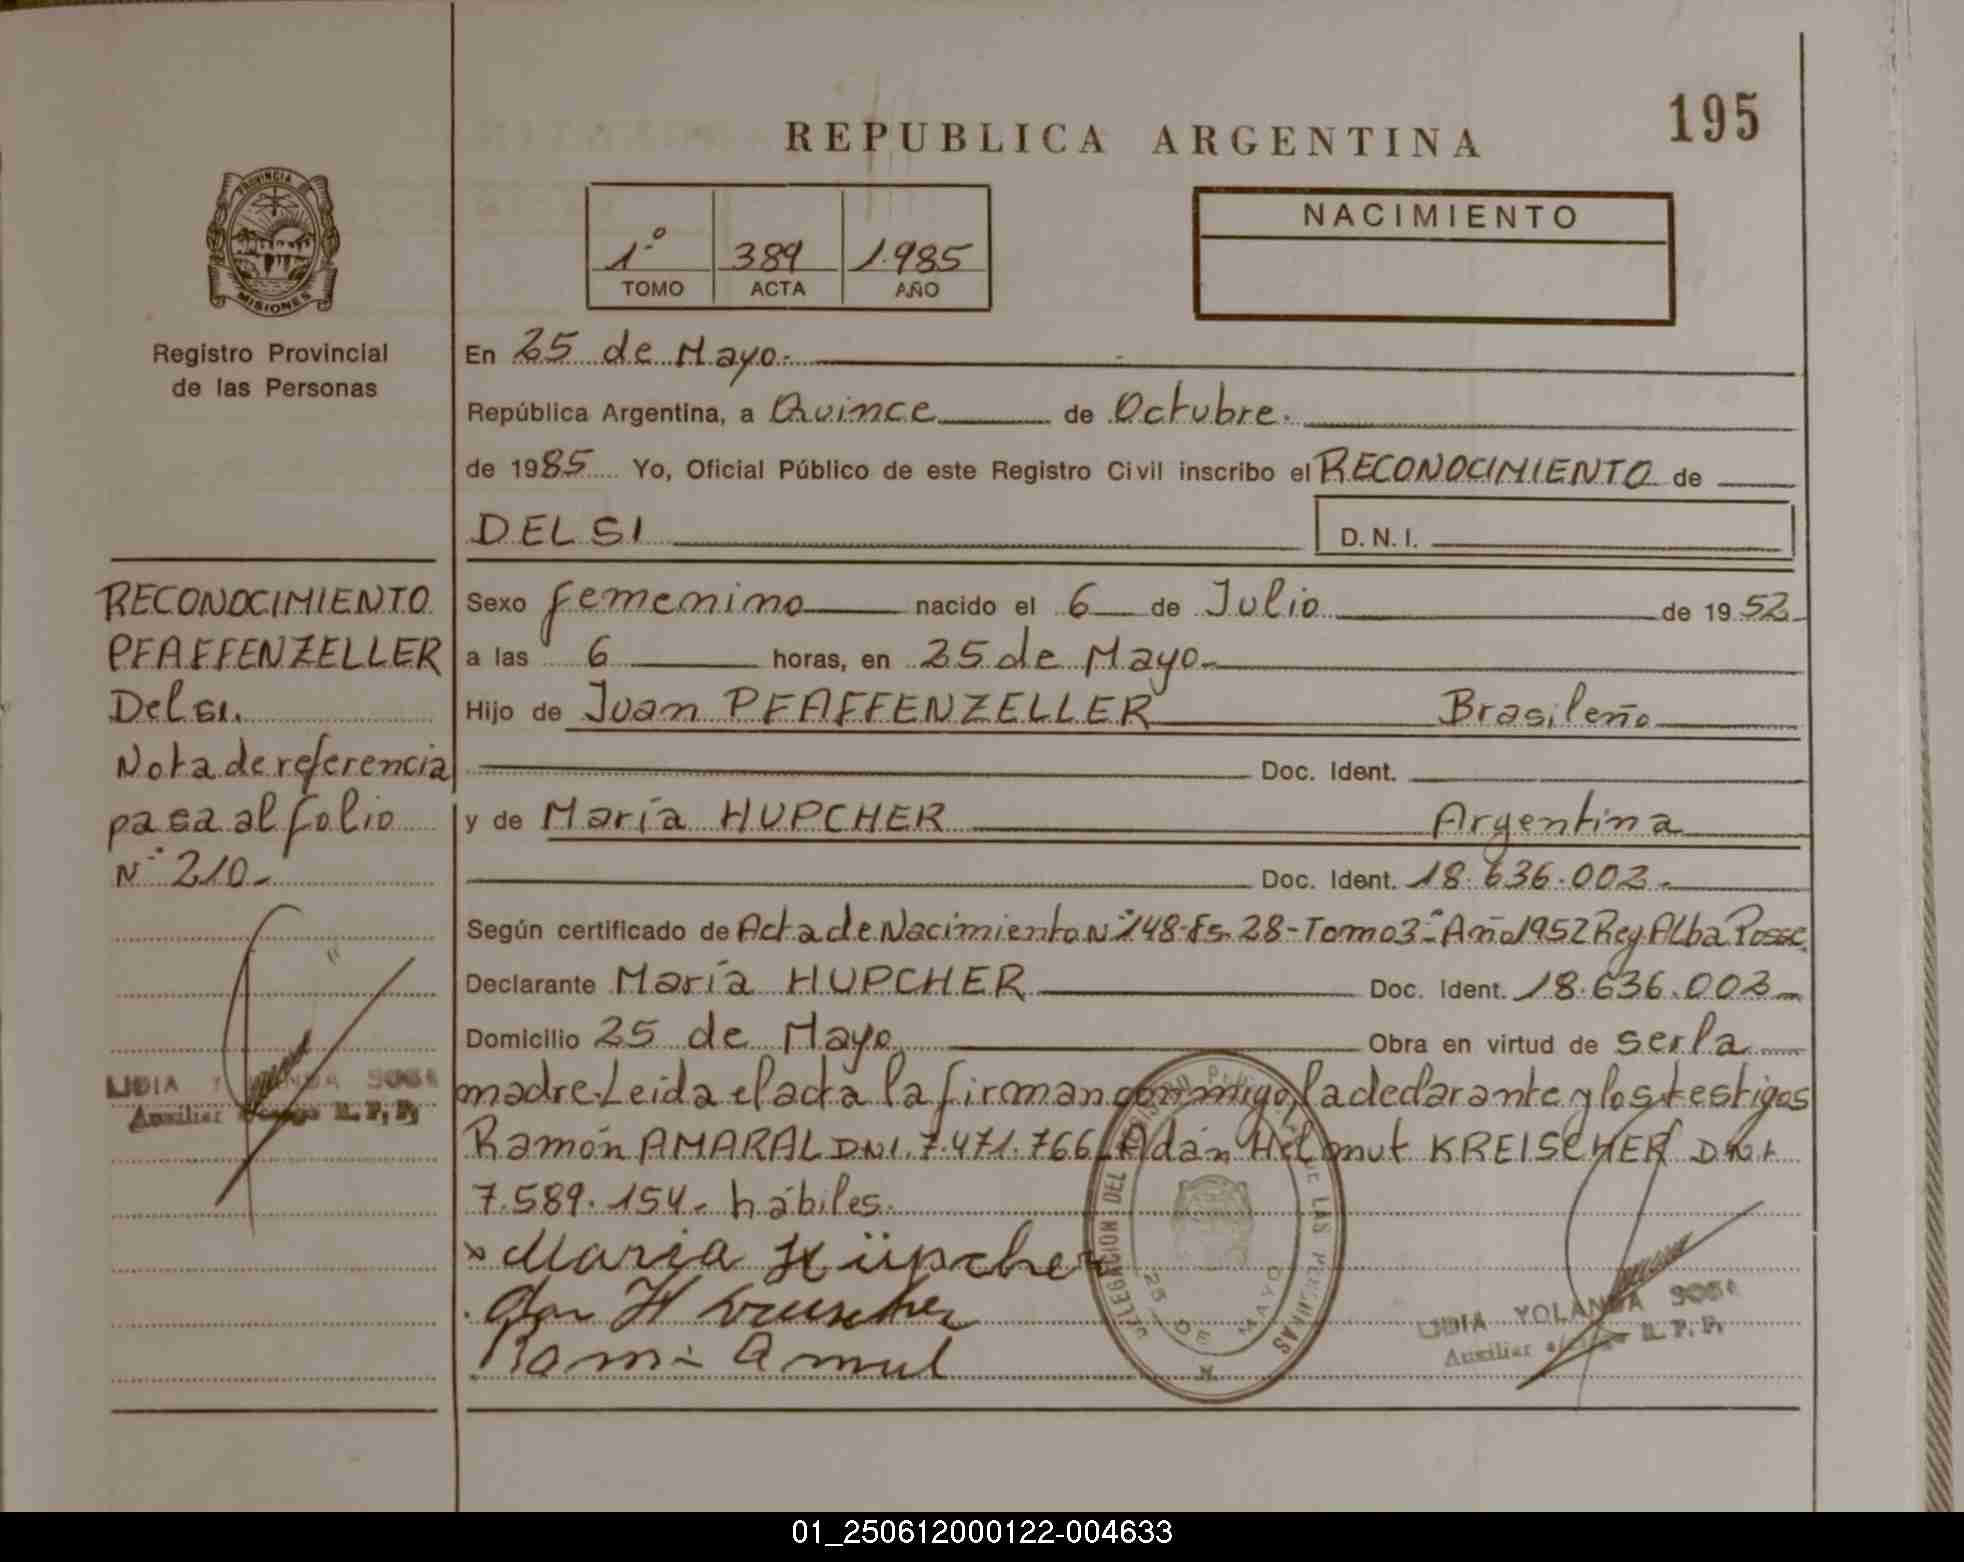 195
REPUBLICA ARGENTINA
PROVINCIA DE
MISIONES
Registro Provincial
de las Personas
1º 389 1.985
TOMO ACTA AÑO
NACIMIENTO
En 25 de Mayo.
República Argentina, a Quince de Octubre.
de 1985 Yo, Oficial Público de este Registro Civil inscribo el RECONOCIMIENTO de
DELSI D.N.I.
Sexo femenino nacido el 6 de Julio de 1952
a las 6 horas, en 25 de Mayo.
Hijo de Juan PFAFFENZELLER Brasileño
Doc. Ident.
y de María HUPCHER Argentina
Doc. Ident. 18.636.002.
Según certificado de Acta de Nacimiento Nº 148-Fs. 28-Tomo 3º-Año 1952 Reg. Alba Posse
Declarante María HUPCHER Doc. Ident. 18.636.002
Domicilio 25 de Mayo Obra en virtud de ser la
madre. Leida el acta la firman conmigo, la declarante y los testigos
Ramón AMARAL DNI. 7.471.766 Adán Helmut KREISCHER DNI
7.589.154. hábiles.
x Maria Hüpcher
RECONOCIMIENTO
PFAFFENZELLER
Delsi.
Nota de referencia
pasa al folio
Nº 210.
LIDIA YOLANDA SOSA
Auxiliar R. P. P.
DELEGACION DEL REGISTRO DE LAS PERSONAS
25 DE MAYO
LIDIA YOLANDA SOSA
Auxiliar R. P. P.
01_250612000122-004633